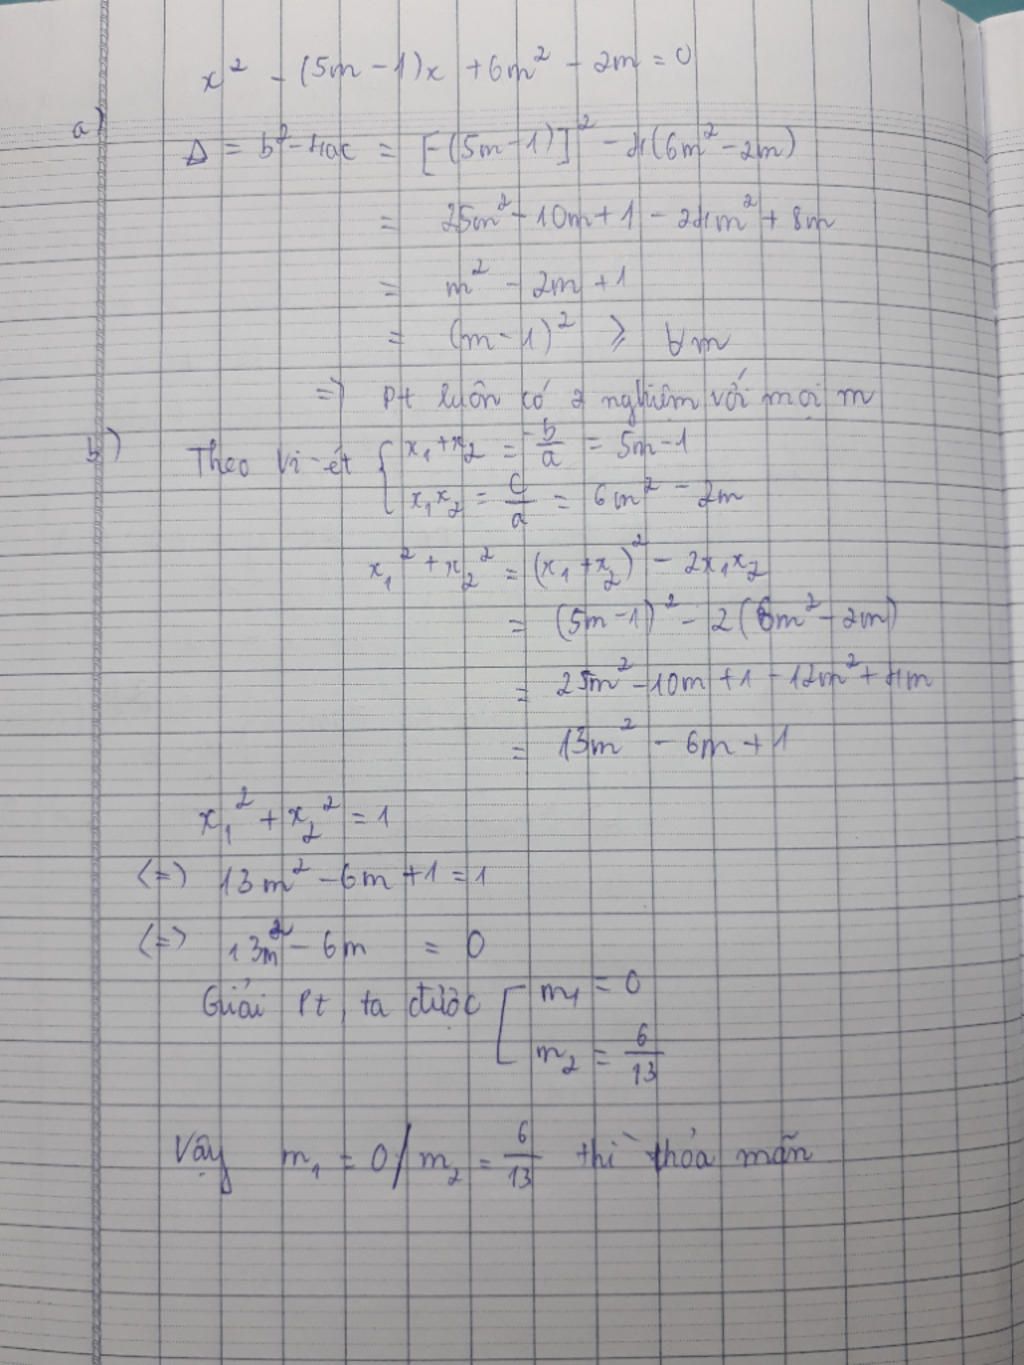 x² - (5m - 1)x + 6m² - 2m = 0
a)
Δ = b² - 4ac = [-(5m - 1)]² - 4(6m² - 2m)
= 25m² - 10m + 1 - 24m² + 8m
= m² - 2m + 1
= (m - 1)² ⩾ ∀m
=> Pt luôn có 2 nghiệm với mọi m
b) Theo Vi-ét { x₁ + x₂ = -b/a = 5m - 1
x₁x₂ = c/a = 6m² - 2m
x₁² + x₂² = (x₁ + x₂)² - 2x₁x₂
= (5m - 1)² - 2(6m² - 2m)
= 25m² - 10m + 1 - 12m² + 4m
= 13m² - 6m + 1
x₁² + x₂² = 1
(=) 13m² - 6m + 1 = 1
(=) 13m² - 6m = 0
Giải Pt, ta được [ m₁ = 0
m₂ = 6/13
Vậy m₁ = 0 / m₂ = 6/13 thì thỏa mãn